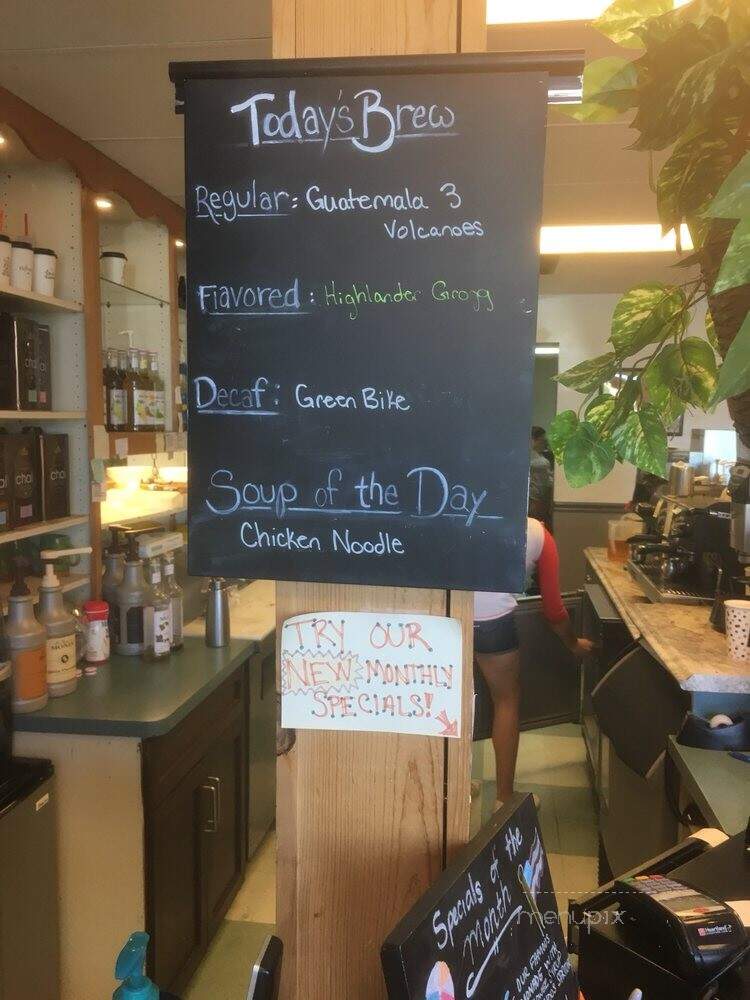 Today's Brew
Regular: Guatemala 3
Volcanoes
Flavored: Highlander Grogg
Decaf: Green Bike
Soup of the Day
Chicken Noodle
TRY OUR
NEW MONTHLY
SPECIALS!
Specials of the
Month
OUR FAMOUS
menupix
Heartland
chai
chai
chai